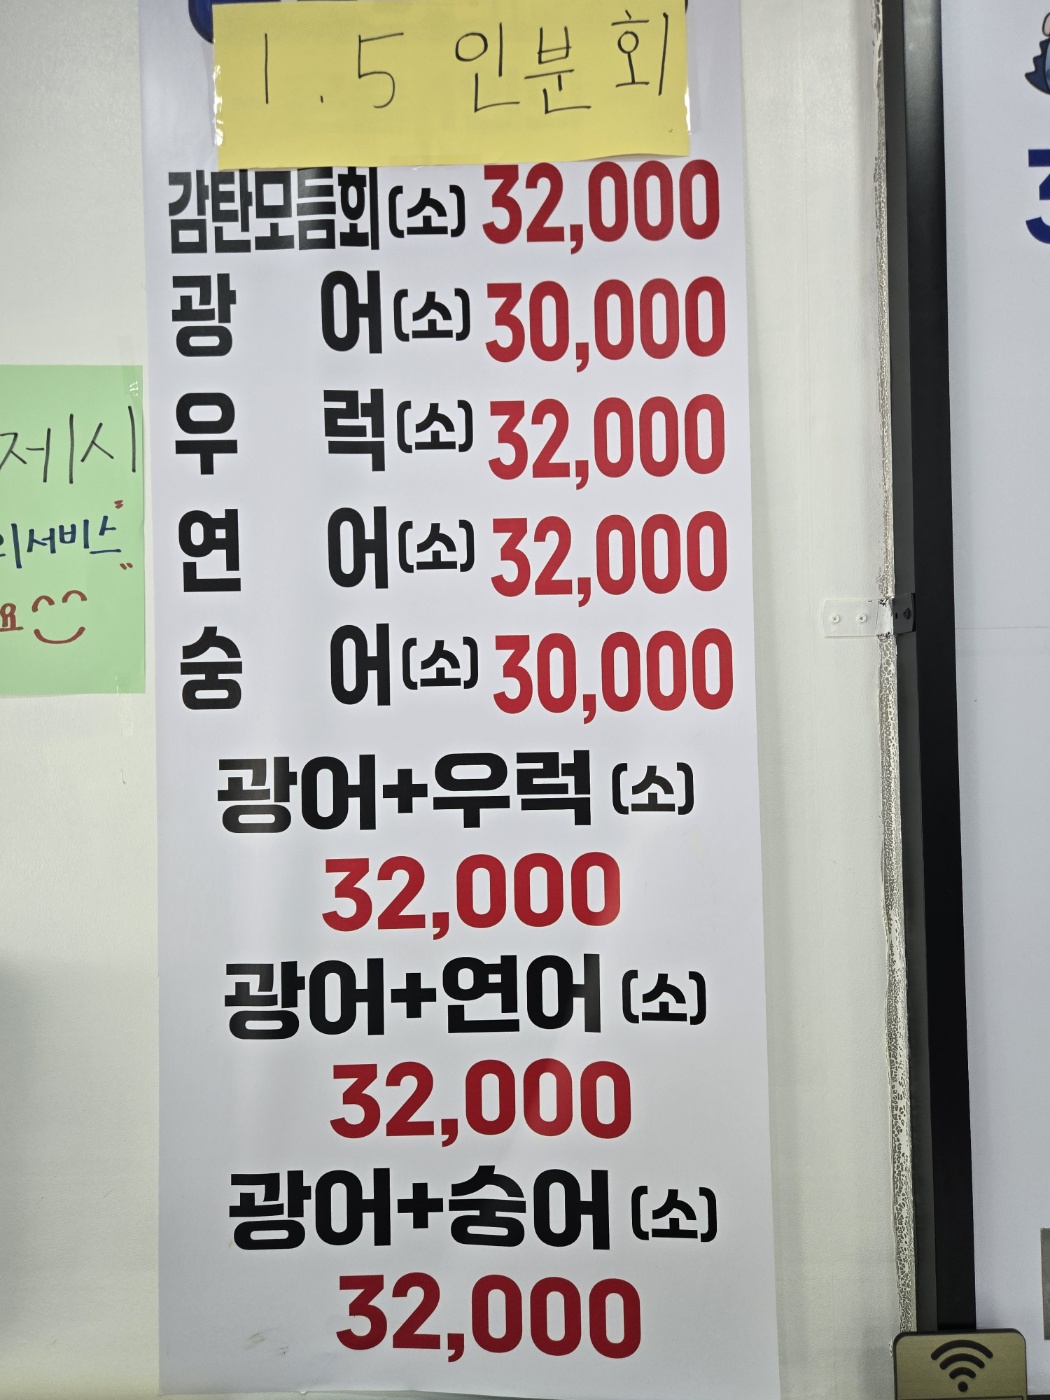 1.5인분 회
감탄모듬회(소) 32,000
광 어(소) 30,000
우 럭(소) 32,000
연 어(소) 32,000
숭 어(소) 30,000
광어+우럭(소)
32,000
광어+연어(소)
32,000
광어+숭어(소)
32,000
제시
서비스"
요